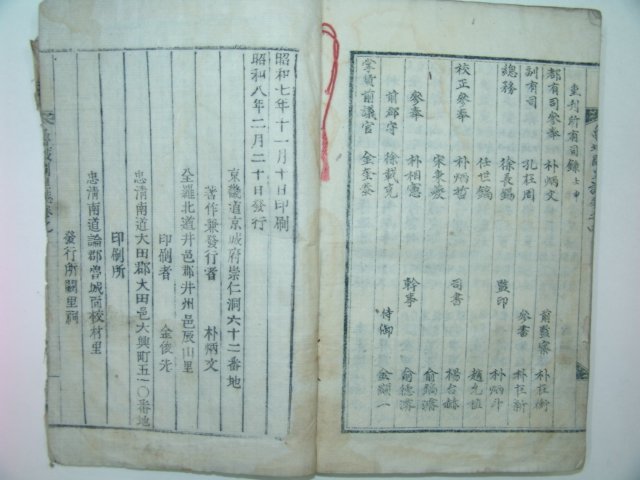 重刊所有司錄 士申
都有司參奉 朴炳文
訓有司 孔在周
總務 徐長錫
任世鎬
校正參奉 朴炳哲
宋秉夔
參奉 朴相憲
前郡守 徐載克
掌貨前議官 金奎
前監察 朴在衡
參書 朴在新
監印 朴炳斗
趙九
司書 楊台赫
俞鎬濬
幹事 俞德濬
侍御 金顯一
昭和七年十一月十日印刷
昭和八年二月二十日發行
京畿道京城府崇仁洞六十二番地
著作兼發行者 朴炳文
全羅北道井邑郡井州邑辰山里
印刷者 金俊先
忠清南道大田郡大田邑大興町五一〇番地
印刷所
忠清南道論山郡魯城面校村里
發行所闕里祠